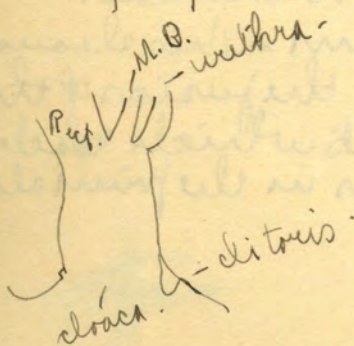 M.B.
urethra-
Rect.
clitoris.
cloáca.